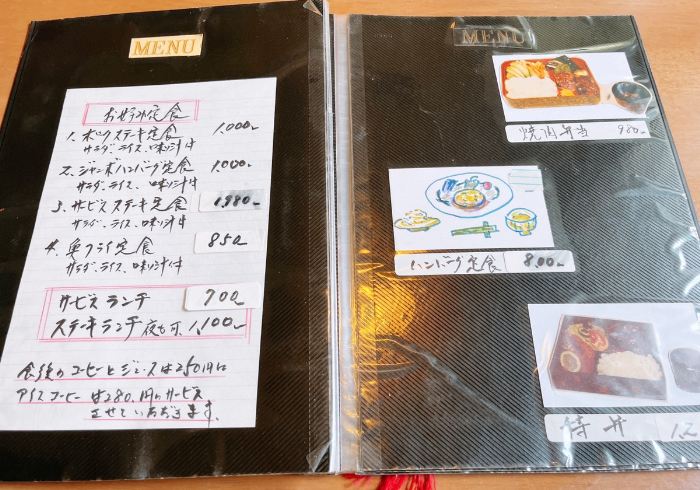 MENU
お好み定食
1. ポークステーキ定食 1,000-
サラダ、ライス、味噌汁付
2. ジャンボハンバーグ定食 1,000-
サラダ、ライス、味噌汁付
3. サービスステーキ定食 1,980-
サラダ、ライス、味噌汁付
4. 魚フライ定食 850-
サラダ、ライス、味噌汁付
サービスランチ 700-
ステーキランチ 夜も可 1,100-
食後のコーヒーとジュースは250円に
アイスコーヒーは280円のサービス
させていただきます。
MENU
焼肉弁当 980-
ハンバーグ定食 800-
特丼 1,2